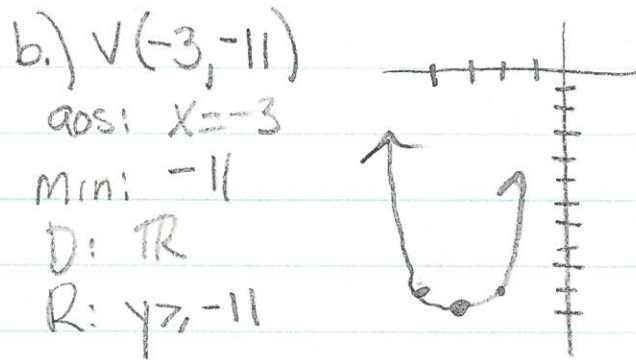 b.) V(-3,-11)
aos: x=-3
min: -11
D: ℝ
R: y≥-11